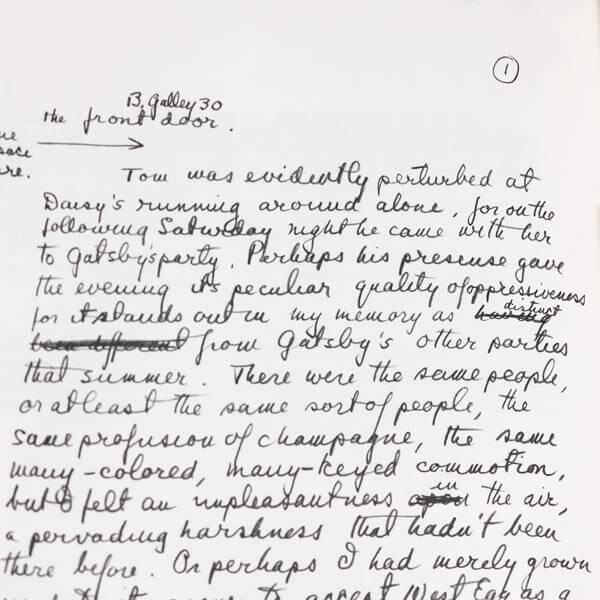 1
B. Galley 30
the front door.
Tom was evidently perturbed at
Daisy's running around alone, for on the
following Saturday night he came with her
to Gatsby's party. Perhaps his presense gave
the evening its peculiar quality of oppressiveness
distinct
for it stands out in my memory as having
been different from Gatsby's other parties
that summer. There were the same people,
or at least the same sort of people, the
same profusion of champagne, the same
many-colored, many-keyed commotion,
in
but I felt an unpleasantness upon the air,
a pervading harshness that hadn't been
there before. Or perhaps I had merely grown
to accept West Egg as a